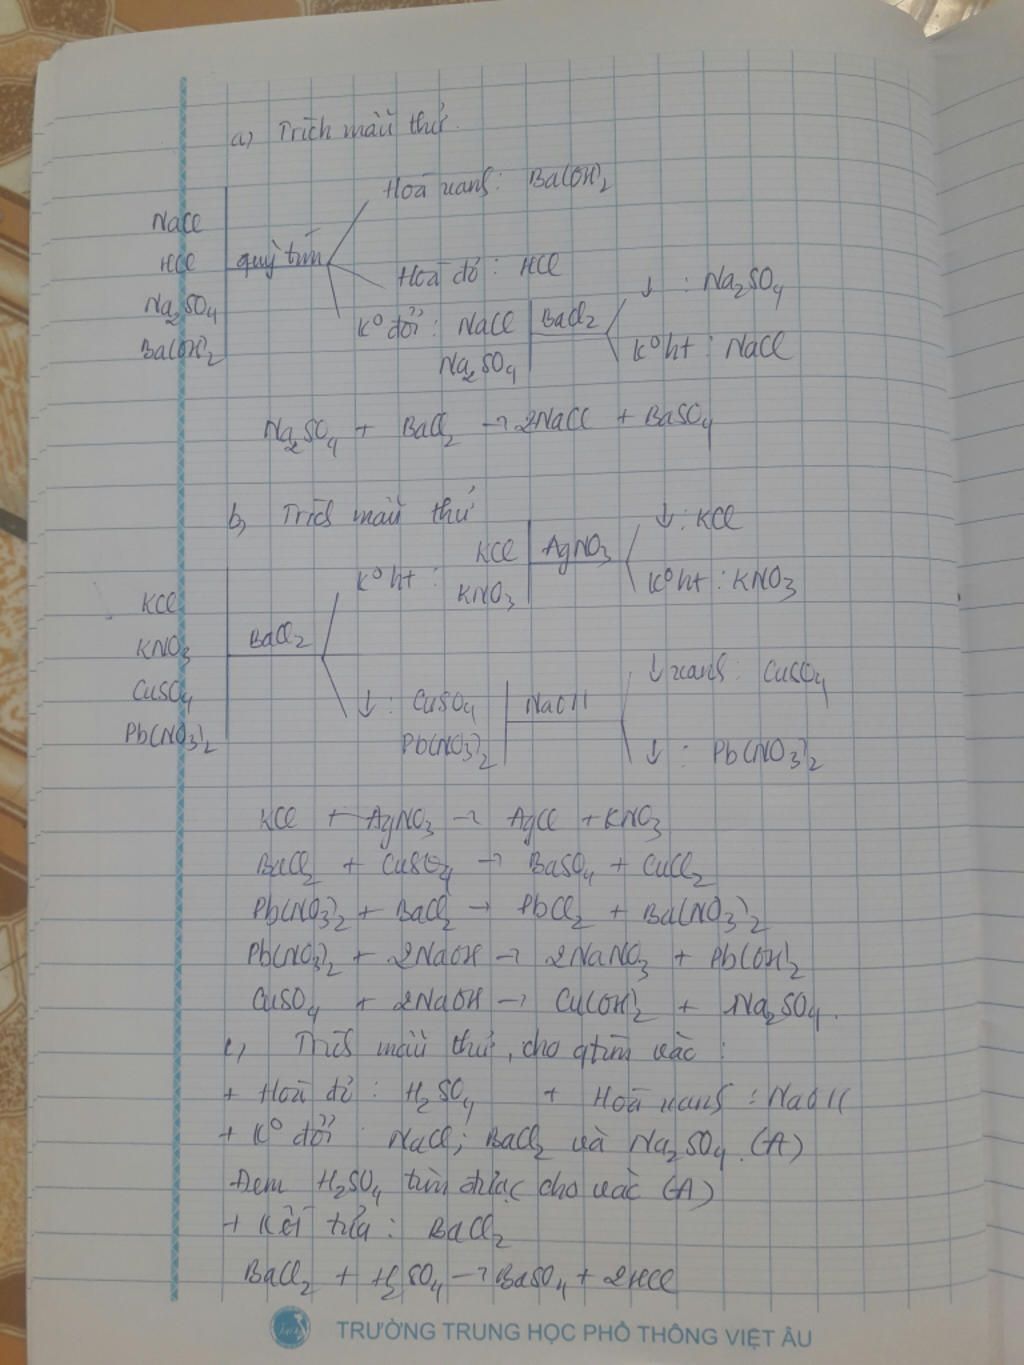 a) Trích mẫu thử.
Hoá xanh: Ba(OH)2
NaCl
HCl
quỳ tím
Hoá đỏ: HCl
↓: Na2SO4
Na2SO4
K° đổi: NaCl
BaCl2
Ba(OH)2
Na2SO4
K° ht: NaCl
Na2SO4 + BaCl2 → 2NaCl + BaSO4
b) Trích mẫu thử
↓: KCl
KCl
AgNO3
K° ht:
KNO3
K° ht: KNO3
KCl
KNO3
BaCl2
CuSO4
↓: CuSO4
NaOH
↓ xanh: CuSO4
Pb(NO3)2
Pb(NO3)2
↓: Pb(NO3)2
KCl + AgNO3 → AgCl + KNO3
BaCl2 + CuSO4 → BaSO4 + CuCl2
Pb(NO3)2 + BaCl2 → PbCl2 + Ba(NO3)2
Pb(NO3)2 + 2NaOH → 2NaNO3 + Pb(OH)2
CuSO4 + 2NaOH → Cu(OH)2 + Na2SO4.
c) Trích mẫu thử, cho qtím vào:
+ Hoá đỏ: H2SO4 + Hoá xanh: NaOH
+ K° đổi: NaCl; BaCl2 và Na2SO4. (A)
Đem H2SO4 tìm được cho vào (A)
+ Kết tủa: BaCl2
BaCl2 + H2SO4 → BaSO4 + 2HCl
TRƯỜNG TRUNG HỌC PHỔ THÔNG VIỆT ÂU